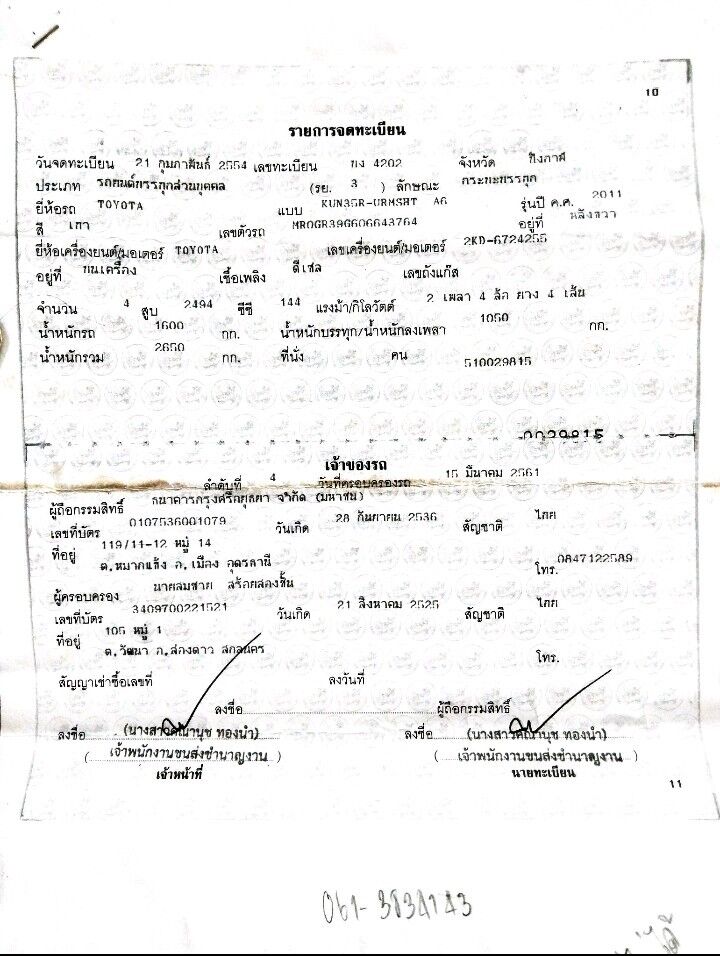 10
รายการจดทะเบียน
วันจดทะเบียน 21 กุมภาพันธ์ 2554 เลขทะเบียน 4202 จังหวัด บึงกาฬ
ประเภท รถยนต์บรรทุกส่วนบุคคล (รย. 3 ) ลักษณะ กระบะบรรทุก
ยี่ห้อรถ TOYOTA แบบ KUN35R-URMSHT A6 รุ่นปี ค.ศ. 2011
สี เทา เลขตัวรถ MR0GR39G606643764 อยู่ที่ หลังขวา
ยี่ห้อเครื่องยนต์/มอเตอร์ TOYOTA เลขเครื่องยนต์/มอเตอร์ 2KD-6724255
อยู่ที่ บนเครื่อง เชื้อเพลิง ดีเซล เลขถังแก๊ส
จำนวน 4 สูบ 2494 ซีซี 144 แรงม้า/กิโลวัตต์ 2 เพลา 4 ล้อ ยาง 4 เส้น
น้ำหนักรถ 1600 กก. น้ำหนักบรรทุก/น้ำหนักลงเพลา 1050 กก.
น้ำหนักรวม 2650 กก. ที่นั่ง คน 510029815
เจ้าของรถ
ลำดับที่ 4 วันที่ครอบครองรถ 15 มีนาคม 2561
ผู้ถือกรรมสิทธิ์ ธนาคารกรุงศรีอยุธยา จำกัด (มหาชน)
เลขที่บัตร 0107536001079 วันเกิด 28 กันยายน 2536 สัญชาติ ไทย
ที่อยู่ 119/11-12 หมู่ 14
ต.หมากแข้ง อ.เมือง อุดรธานี โทร. 0847122589
ผู้ครอบครอง นายสมชาย สร้อยสองชั้น
เลขที่บัตร 3409700221521 วันเกิด 21 สิงหาคม 2525 สัญชาติ ไทย
ที่อยู่ 105 หมู่ 1
ต.วัฒนา อ.ส่องดาว สกลนคร โทร.
สัญญาเช่าซื้อเลขที่ ลงวันที่
ลงชื่อ ผู้ถือกรรมสิทธิ์
ลงชื่อ (นางสาว ทองนำ) ลงชื่อ (นางสาว ทองนำ)
( เจ้าพนักงานขนส่งชำนาญงาน ) ( เจ้าพนักงานขนส่งชำนาญงาน )
เจ้าหน้าที่ นายทะเบียน
11